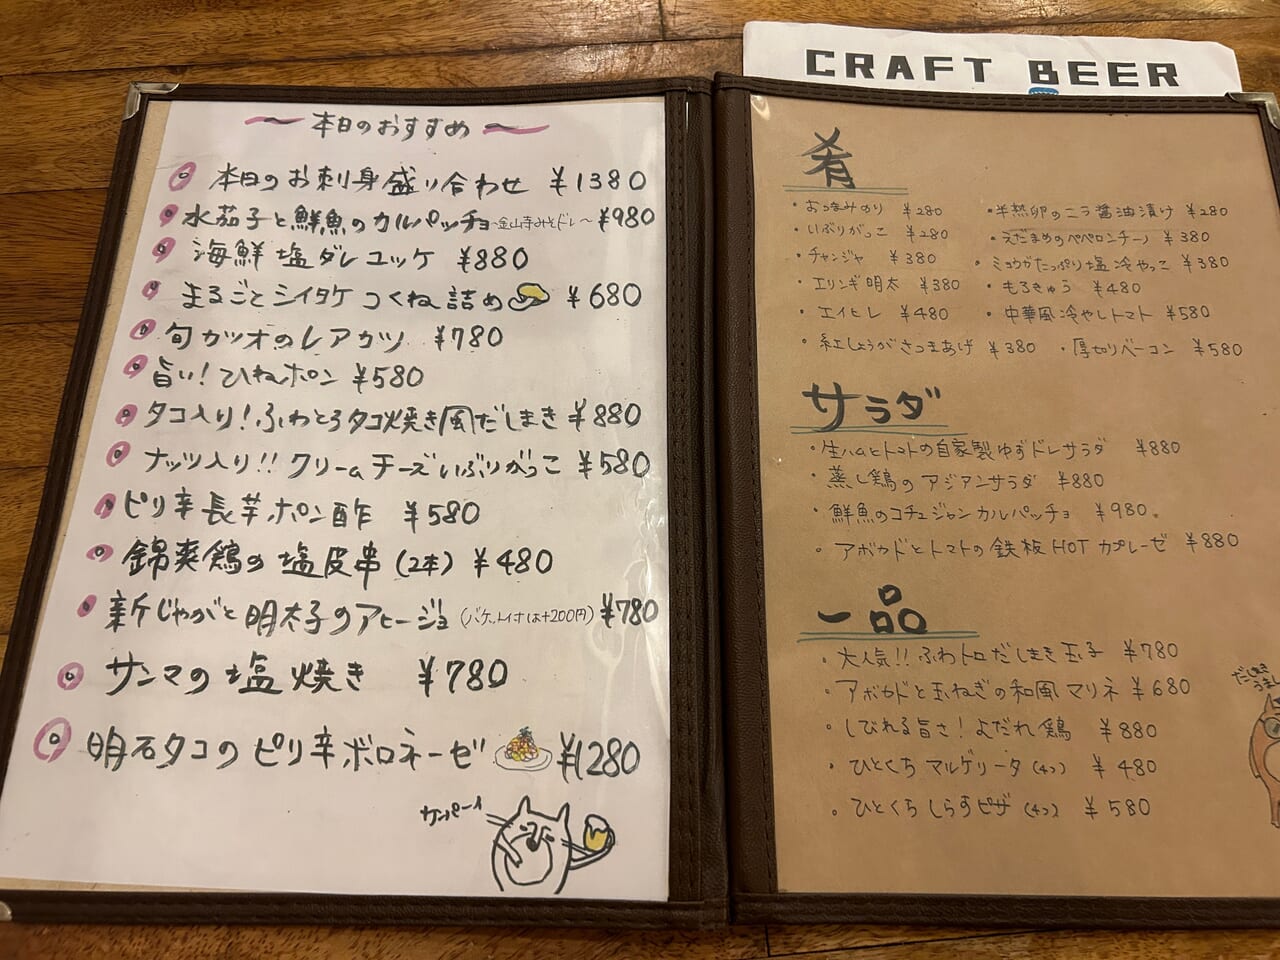 CRAFT BEER
本日のおすすめ
本日のお刺身盛り合わせ ¥1380
水茄子と鮮魚のカルパッチョ ~金山寺みそドレ~ ¥980
海鮮塩ダレユッケ ¥880
まるごとシイタケつくね詰め ¥680
旬カツオのレアカツ ¥780
旨い!ひねポン ¥580
タコ入り!ふわとろタコ焼き風だしまき ¥880
ナッツ入り!!クリームチーズいぶりがっこ ¥580
ピリ辛長芋ポン酢 ¥580
錦爽鶏の塩皮串(2本) ¥480
新じゃがと明太子のアヒージョ(バケットイナは+200円) ¥780
サンマの塩焼き ¥780
明石タコのピリ辛ボロネーゼ ¥1280
肴
・おつまみのり ¥280
・いぶりがっこ ¥280
・チャンジャ ¥380
・エリンギ明太 ¥380
・エイヒレ ¥480
・紅しょうがさつまあげ ¥380
・半熟卵のニラ醤油漬け ¥280
・えだまめのペペロンチーノ ¥380
・ミョウガたっぷり塩冷やっこ ¥380
・もろきゅう ¥480
・中華風冷やしトマト ¥580
・厚切りベーコン ¥580
サラダ
・生ハムとトマトの自家製ゆずドレサラダ ¥880
・蒸し鶏のアジアンサラダ ¥880
・鮮魚のコチュジャンカルパッチョ ¥980
・アボカドとトマトの鉄板HOTカプレーゼ ¥880
一品
・大人気!!ふわトロだしまき玉子 ¥780
・アボカドと玉ねぎの和風マリネ ¥680
・しびれる旨さ!よだれ鶏 ¥880
・ひとくちマルゲリータ(4コ) ¥480
・ひとくちしらすピザ(4コ) ¥580
だしまき
うまし